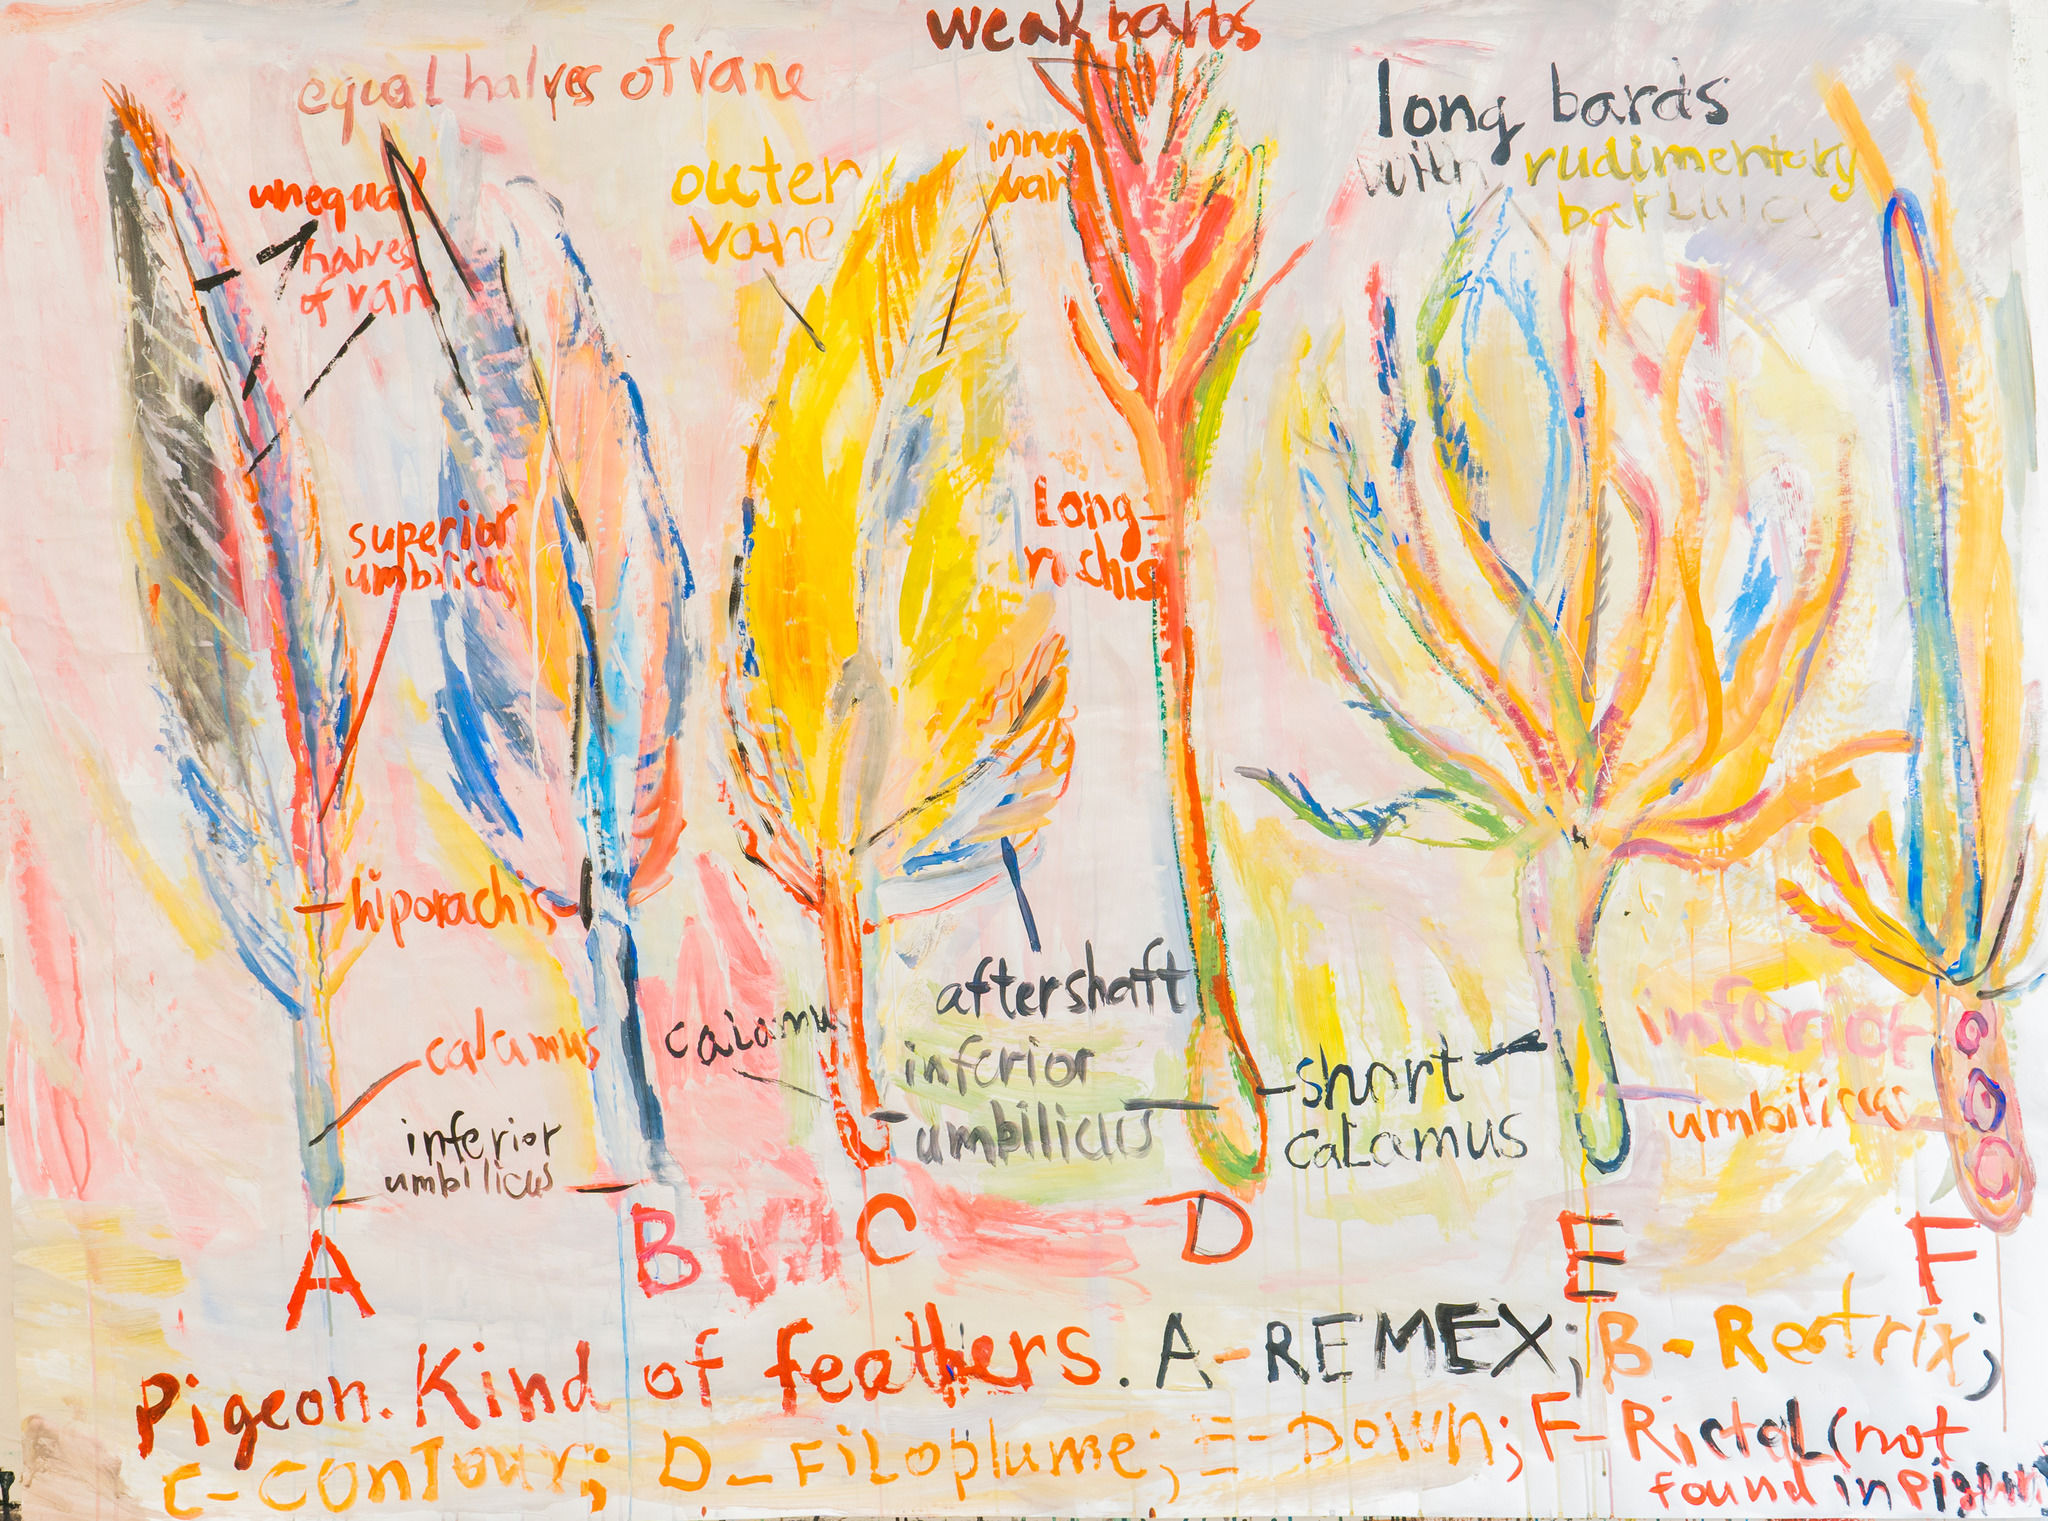 weak barbs
equal halves of vane
long bards
with rudimentory
outer
vane
inner
van
unequal
halves
of van
Long-
superior
umbilicus
hiporachis
aftershaft
calamus
calamu
inferior
umbilicus
inferior
umbilicus
short
calamus
inferior
umbilicus
A
B
C
D
E
F
Pigeon. Kind of feathers. A-REMEX; B-Rectrix;
C-CONTour; D-FiLoplume; E-Down; F-RictaL (not
found in Pigeon